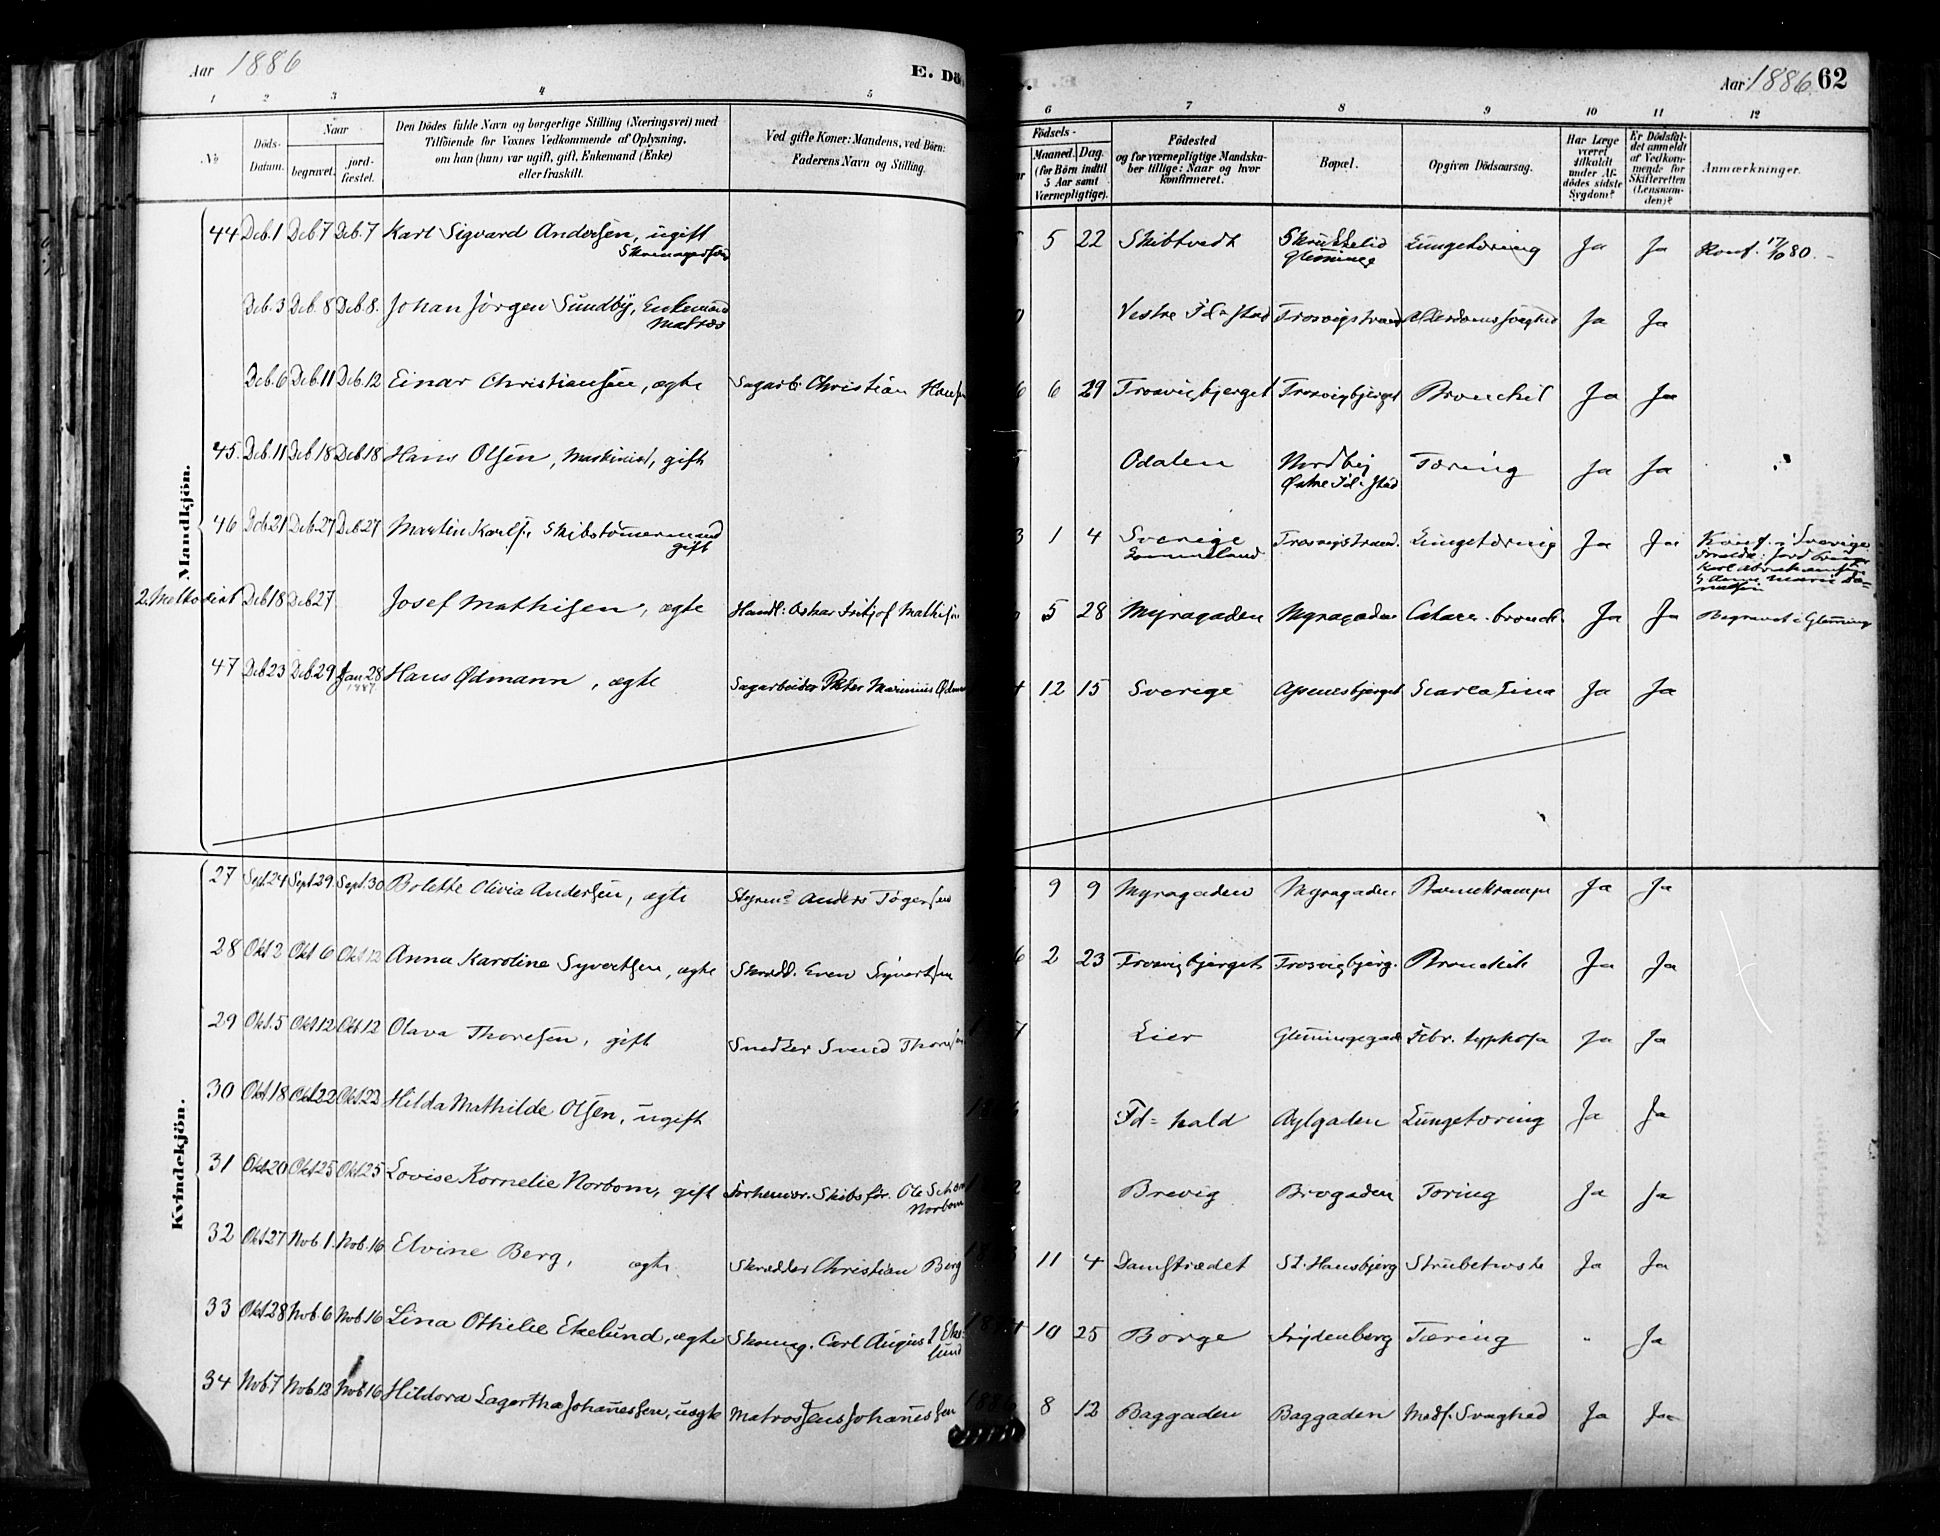 Aar 1886
E. Dö
Aar 1886. 62
1 2 3 4 5 6 7 8 9 10 11 12
No
Döds-Datum.
Naar
begravet.
jord-fæstet.
Den Dödes fulde Navn og borgerlige Stilling (Næringsvei) med
Tilföiende for Voxnes Vedkommende af Oplysning,
om han (hun) var ugift, gift, Enkemand (Enke)
eller fraskilt.
Ved gifte Koner: Mandens, ved Börn:
Faderens Navn og Stilling.
Födsels-
Maaned. Dag.
(for Börn indtil
5 Aar samt
Værnepligtige).
Födested
og for værnepligtige Mandska-
ber tillige: Naar og hvor
konfirmeret.
Bopæl.
Opgiven Dödsaarsag.
Har Læge
været
tilkaldt
under Af-
dödes sidste
Sygdom?
Er Dödsfal-
det anmeldt
af Vedkom-
mende for
Skifteretten
(Lensman-
den)?
Anmærkninger.
Mandkjön.
44 Deb. 1 Deb 7 Deb. 7 Karl Sigvard Andersen, ugift 5 22 Skibtvedt Skrukkelid Lungetæring Ja Ja Konf. 17/10 80.
Glemminge
Deb. 3 Deb. 8 Deb. 8. Johan Jørgen Sundby, Enkemand Vestre Fd-stad Trosvigstrand Alderdomssvaghed Ja Ja
Matros
Deb. 6 Deb. 11 Deb. 12 Einar Christiansen, ægte Sagarb. Christian Hansen 6 6 29 Trosvigbjerget Trosvigbjerget Bronchit Ja Ja
45. Deb. 11 Deb 18 Deb 18 Hans Olsen, Maskinist, gift Odalen Nordby Tæring Ja Ja
Østre Fd-stad
46 Deb 21 Deb 27 Deb 27 Martin Karls. Skibstømermand 3 1 4 Sverige Trosvigstrand. Lungetæring Ja Ja Konf. i Sverige
gift
2. Methodist Deb 18 Deb 27 Josef Mathisen, ægte Handl: Oskar Fritjof Mathisen 5 28 Myragaden Myragaden Catarr. bronch. Ja Ja Begravet i Glemminge
47 Deb 23 Deb. 29 Jan 28 Hans Ødmann, ægte Sagarbeider Peter Marinius Ødman 4 12 15 Sverige Apenesbjerget Scarlatina Ja Ja
1887
Kvindekjön.
27 Sept. 24 Sept. 29 Sept. 30 Bolette Olivia Andersen, ægte Styrm. Anders Tøgersen 9 9 Myragaden Myragaden Barnekrampe Ja Ja
28 Okt 2 Okt 6 Okt 12 Anna Karoline Syvertsen, ægte Skrædd. Even Syvertsen 6 2 23 Trosvigbjerget Trosvigbjerg. Bronchit Ja Ja
29 Okt. 5 Okt 12 Okt 12 Olava Thoresen, gift Snedker Svend Thoresen Lier Glemmingegade Febr. typhosa Ja Ja
30 Okt. 18 Okt 22 Okt 22 Hilda Mathilde Olsen, ugift Fd-hald Aylgaden Lungetæring Ja Ja
31 Okt 20 Okt 25 Okt 25 Lovise Kornelie Norbom, gift Forhenvr. Skibsfør. Ole Schou Brevig Brogaden Tæring Ja Ja
Norbom
32 Okt 27 Nob. 1. Nob. 16 Elvine Berg, ægte. Skrædder Christian Berg 11 4 Damstrædet St. Hansbjerg Strubehoste Ja Ja
33 Okt 28 Nob 6 Nob 16 Lina Othelie Ekelund, ægte Skomag. Carl August Eke- 4 10 25 Borge Frydenberg Tæring " Ja
lund
34 Nob 7 Nob. 12 Nob 16 Hildora Lagertha Johanessen, uægte Matros Jens Johanessen 1886 8 12 Baggaden Baggaden Medf. Svaghed Ja Ja